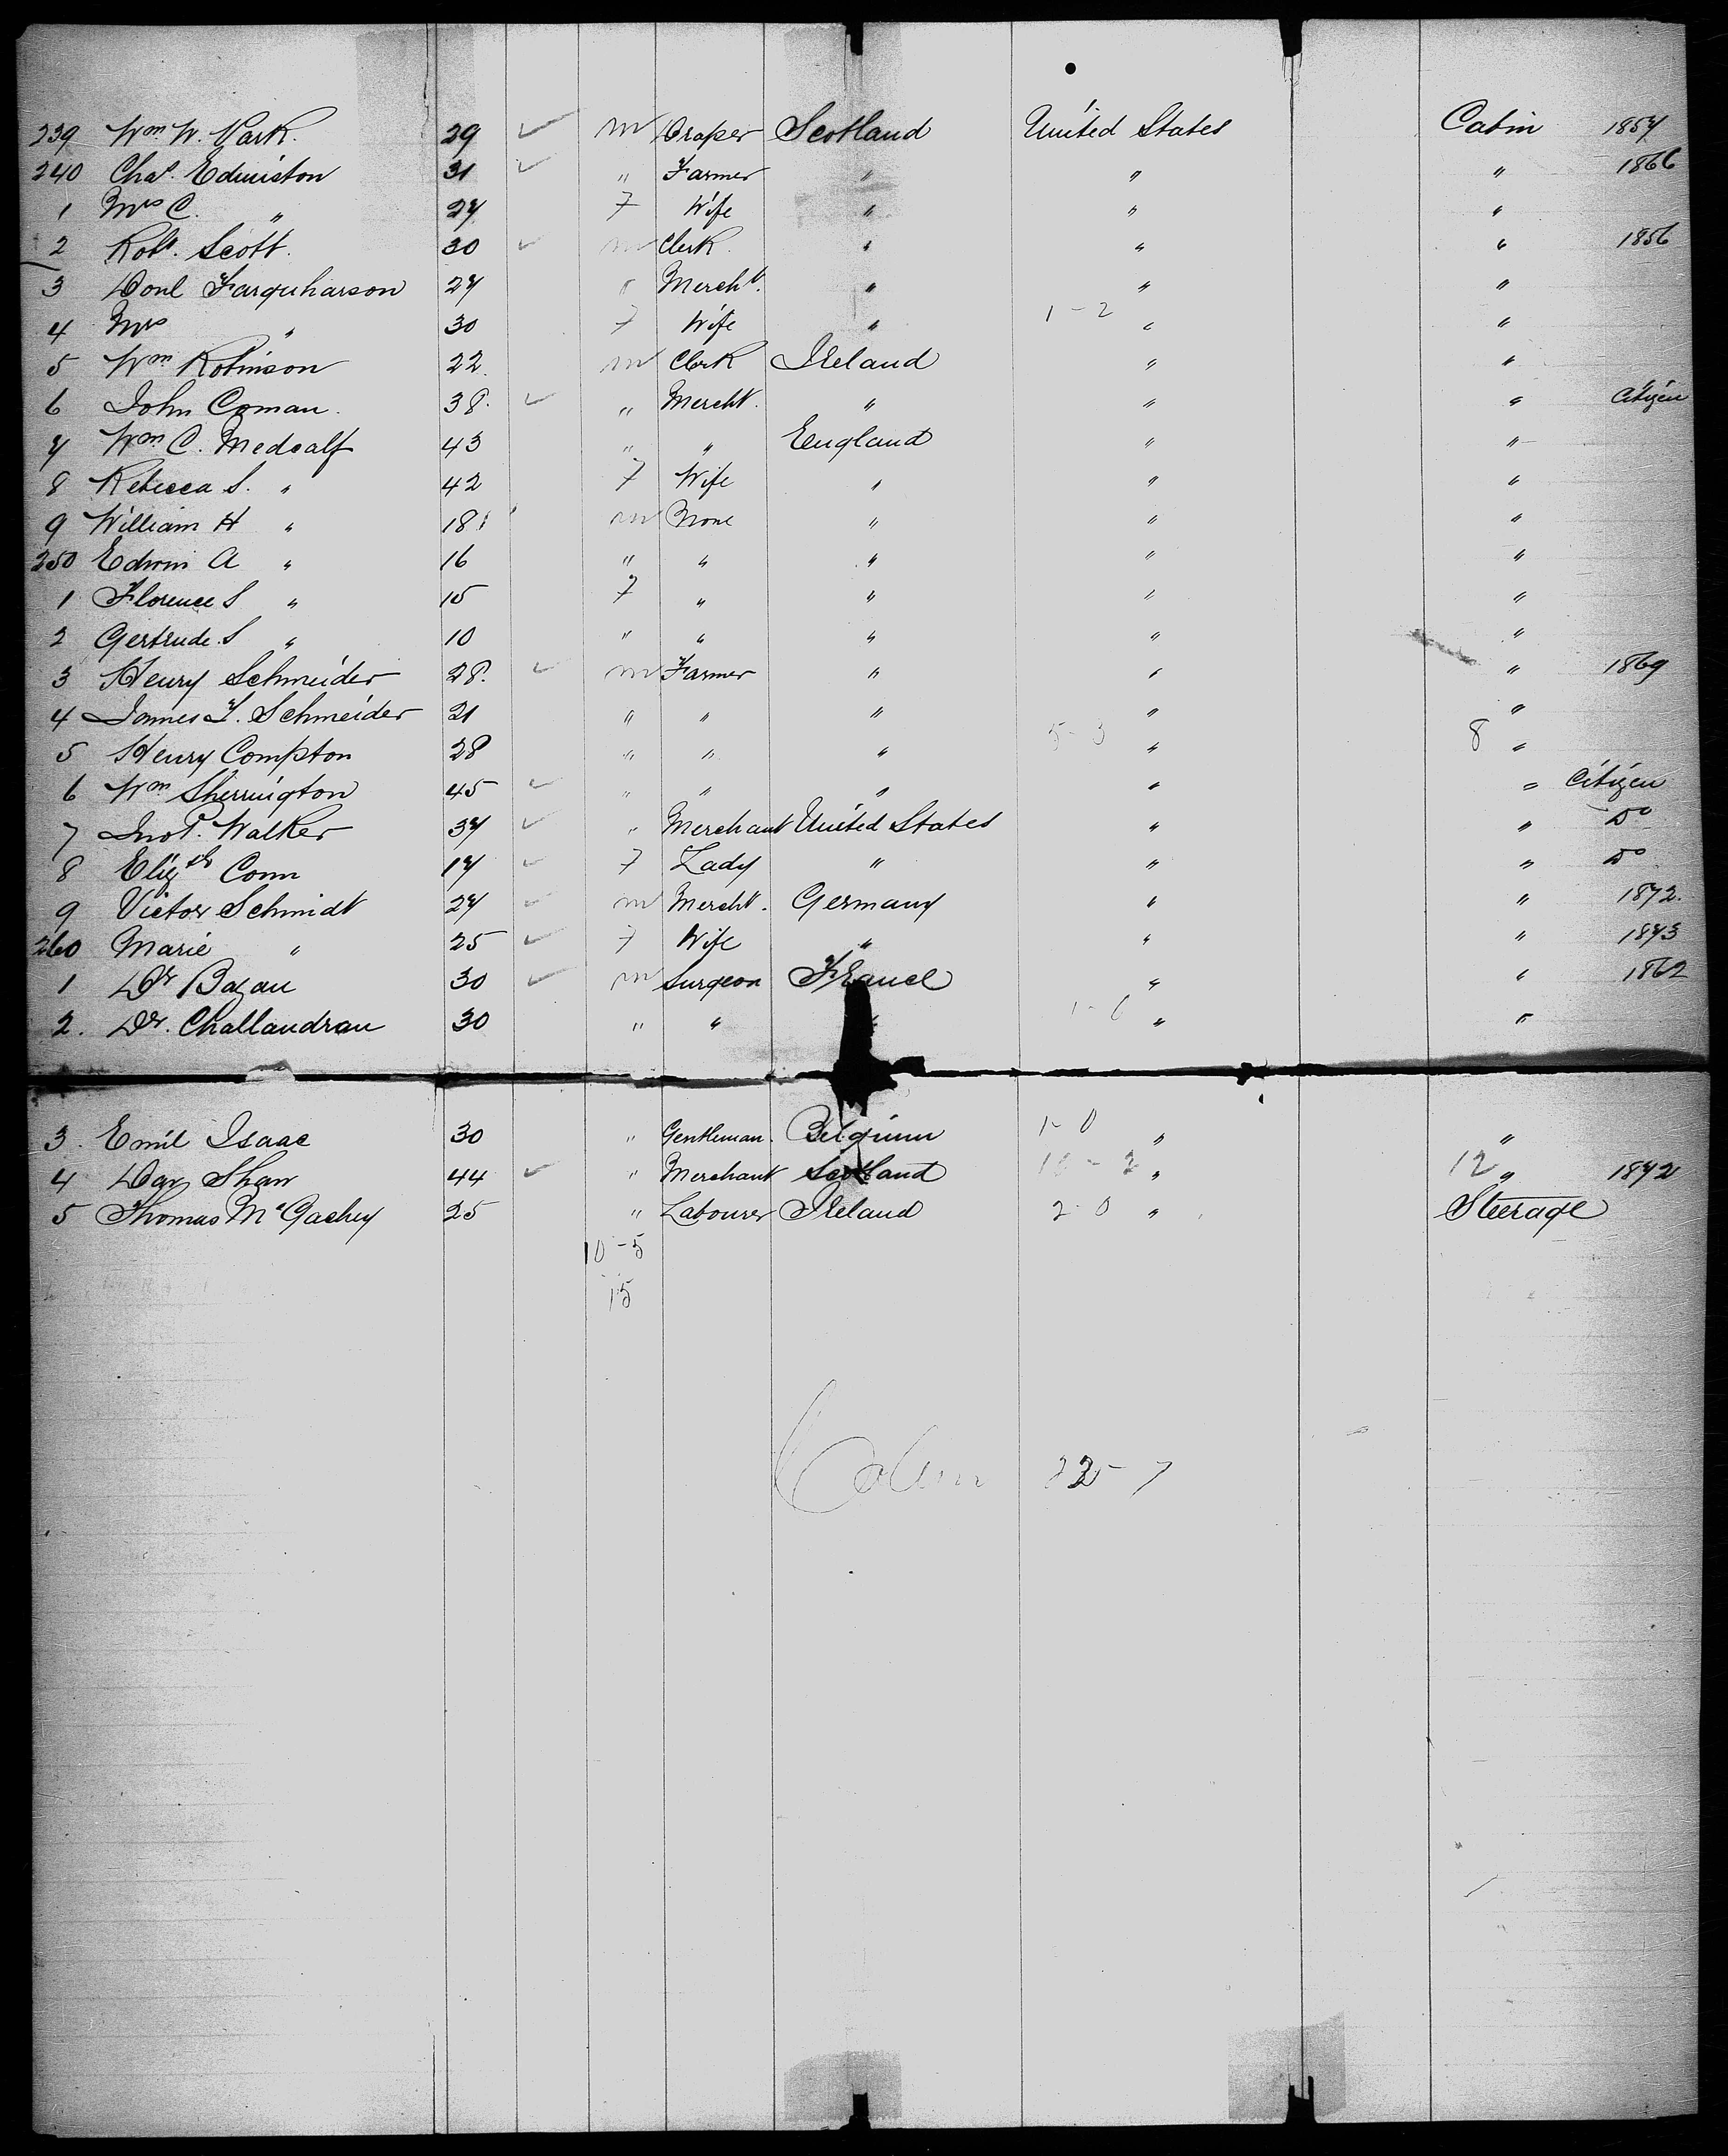 239 Wm W. Park. 29 ✓ m Draper Scotland United States Cabin 1857
240 Chas. Edmiston 31 ✓ " Farmer " " " 1866
1 Mrs C. " 27 F Wife " " "
2 Robt. Scott. 30 ✓ m Clerk " " " 1856
3 Donl Farquharson 27 " Mercht. " " "
4 Mrs " 30 F Wife " 1-2 " "
5 Wm Robinson 22. m Clerk Ireland " "
6 John Coman. 38. ✓ " Mercht. " " " Citizen
7 Wm C. Medcalf 43 " " England " "
8 Rebecca S. " 42 F Wife " " "
9 William H " 18 m None " " "
250 Edwin A " 16 " " " " "
1 Florence S " 15 F " " " "
2 Gertrude. S " 10 " " " " "
3 Henry Schneider 28. ✓ m Farmer " " " 1869
4 James F. Schneider 21 " " " " "
5 Henry Compton 28 " " " 5-3 " 8 "
6 Wm Sherrington 45 ✓ " " " " " Citizen
7 Jno P. Walker 37 ✓ " Merchant United States " " Do
8 Elizth Conn 17 ✓ F Lady " " " Do
9 Victor Schmidt 27 ✓ m Mercht. Germany " " 1872.
260 Marie " 25 ✓ F Wife " " " 1873
1 Dr Bazan 30 ✓ m Surgeon France " " 1862
2. Dr. Challandrau 30 " " 1-0 " "
3. Emil Isaac 30 " Gentleman. Belgium 1-0 " "
4 Dav Shaw 44 ✓ " Merchant Scotland " 12 " 1872
5 Thomas McGachey 25 " Labourer Ireland 2-0 " Steerage
10-5
15
7